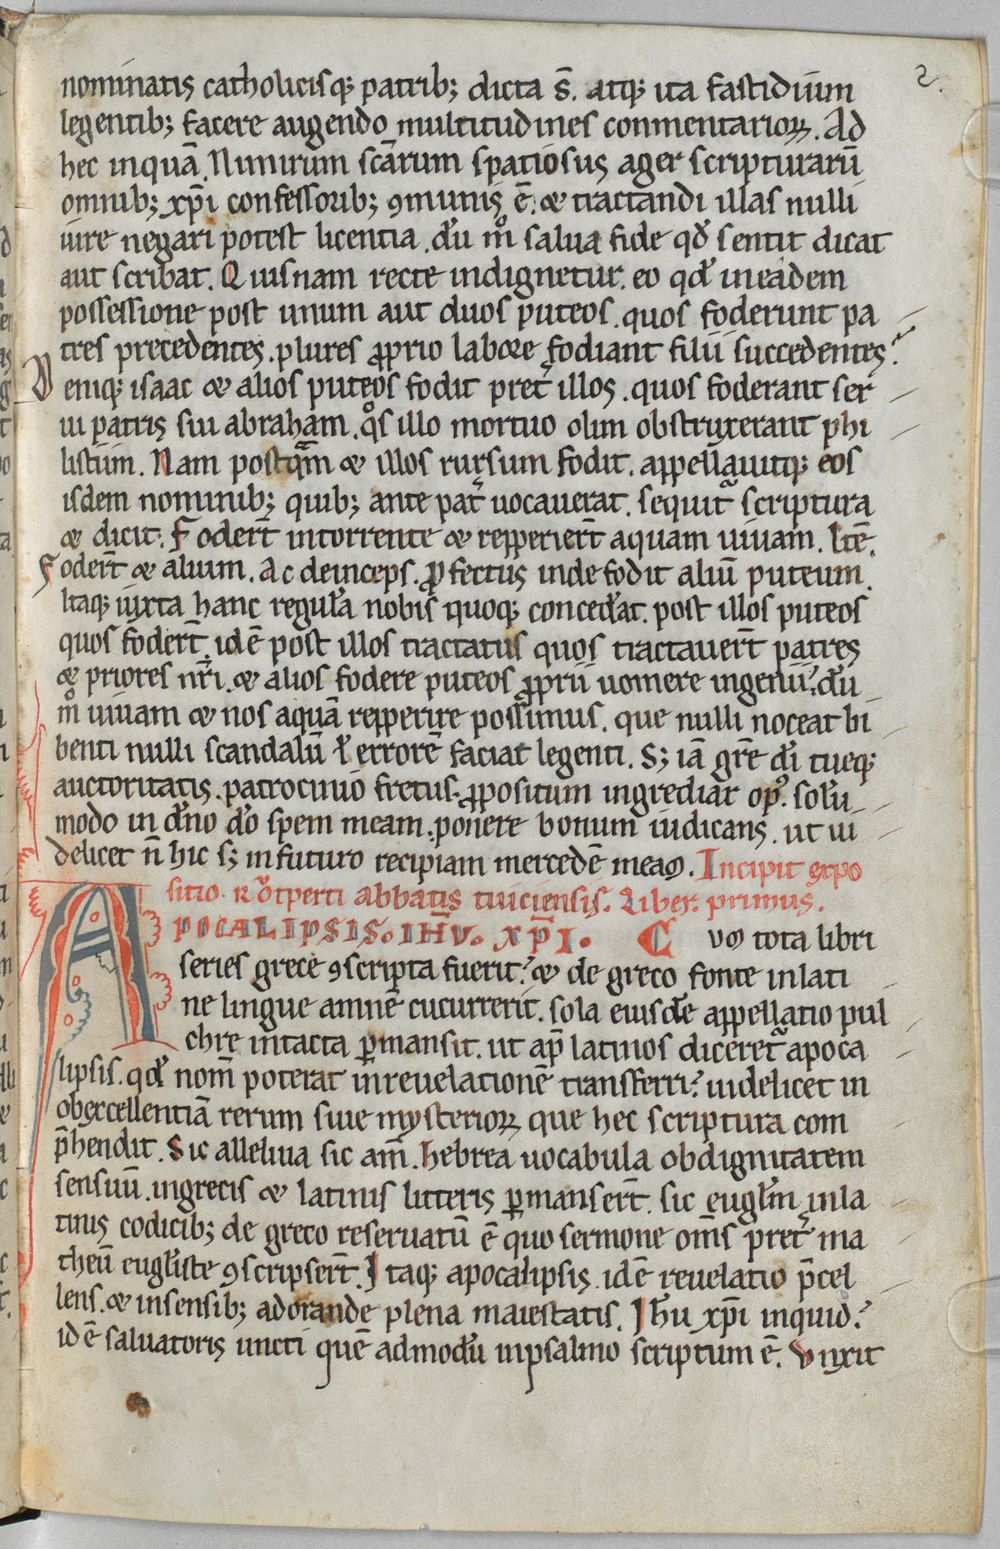 2.
nominatis catholicisq; patrib; dicta s̄. atq; ita fastidium
legentib; facere augendo multitudines conmentarioꝝ. Ad
hec inquā. Nimirum scārum spatiosus ager scripturarū
omnib; xp̄i confessorib; ꝯmunis ē. & tractandi illas nulli
iure negari potest licentia. dū m̊ salua fide qd̄ sentit dicat
aut scribat. Quisnam recte indignetur. eo qd̄ in eadem
possessione post unum aut duos puteos. quos foderunt pa
tres precedentes. plures ꝓprio labore fodiant filii succedentes?
Deniq; isaac & alios puteos fodit pret̄ illos. quos foderant ser
ui patris sui abraham. q̊s illo mortuo olim obstruxerant phi
listiim. Nam postqm̄ & illos rursum fodit. appellauitq; eos
isdem nominib; quib; ante pat̄ uocauerat. sequit̄ scriptura
& dicit. Foder̄t in torrente & repperier̄t aquam uiuam. Itē.
Foder̄t & alium. Ac deinceps. ꝓfectus inde fodit aliū puteum.
Itaq; iuxta hanc regulā nobis quoq; concedat̄. post illos puteos
quos foder̄t. id ē post illos tractatus quos tractauer̄t patres
& priores nr̄i. & alios fodere puteos ꝓprii uomere ingenii. dū
m̊ uiuam & nos aquā repperire possimus. que nulli noceat bi
benti nulli scandalū ł errorē faciat legenti. S; iā gr̄e dī tueq;
auctoritatis. patrocinio fretus. ꝓpositum ingrediar op̄. solū
modo in dn̄o dō spem meam. ponere bonum iudicans. ut ui
delicet n̄ hic s; in futuro recipiam mercedē meam. Incipit expo
sitio. Rŏtperti abbatis tuiciensis. Liber. primus.
APOCALIPSIS. IHV̄. XP̄I. Cum tota libri
series grece ꝯscripta fuerit. & de greco fonte in lati
ne lingue amnē cucurrerit. sola eiusdē appellatio pul
chre intacta ꝑmansit. ut ap̄ latinos diceret̄ apoca
lipsis. qd̄ nom̄ poterat in reuelationē transferri. uidelicet in
ob excellentiā rerum siue mysterioꝝ que hec scriptura com
p̄hendit. Sic alleluia sic am̄. hebrea uocabula ob dignitatem
sensuū. in grecis & latinis litteris ꝑmanser̄t. sic eugl̄m in la
tinis codicib; de greco reseruatū ē quo sermone om̄s pret̄ ma
theū eugl̄iste ꝯscripser̄t. Itaq; apocalipsis. id ē reuelatio p̄cel
lens. & in sensib; adorande plena maiestatis. Ihū xp̄i inquid.
id ē saluatoris uncti quē admodū in psalmo scriptum ē. Vnxit